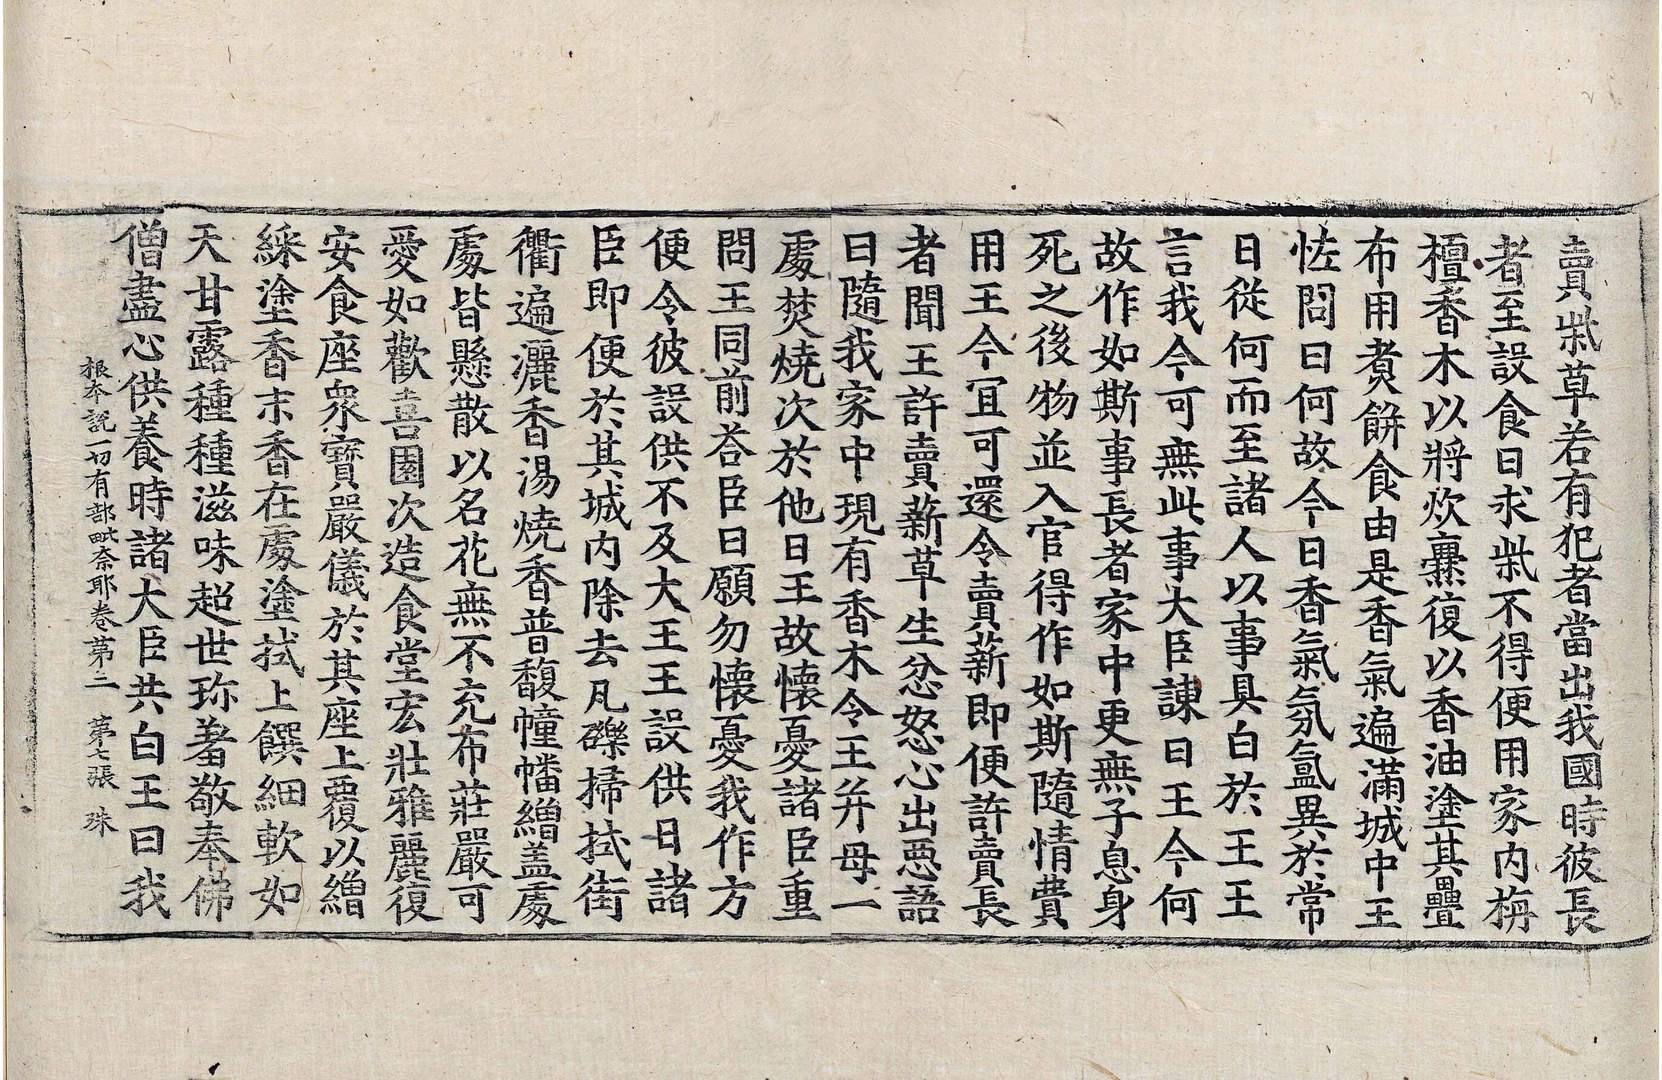 賣柴草若有犯者當出我國時彼長
者至設食日求柴不得便用家內栴
檀香木以將炊爨復以香油塗其疊
布用煑餅食由是香氣遍滿城中王
恠問曰何故今日香氣氛氳異於常
日從何而至諸人以事具白於王王
言我今可無此事大臣諫曰王今何
故作如斯事長者家中更無子息身
死之後物並入官得作如斯隨情費
用王今宜可還令賣薪即便許賣長
者聞王許賣薪草生忿怒心出惡語
曰隨我家中現有香木令王并母一
處焚燒次於他日王故懷憂諸臣重
問王同前荅臣曰願勿懷憂我作方
便令彼設供不及大王王設供日諸
臣即便於其城內除去凡礫掃拭街
衢遍灑香湯燒香普馥幢幡繒盖處
處皆懸散以名花無不充布莊嚴可
愛如歡喜園次造食堂宏壯雅麗復
安食座衆寶嚴儀於其座上覆以繒
綵塗香末香在處塗拭上饌細軟如
天甘露種種滋味超世珎羞敬奉佛
僧盡心供養時諸大臣共白王曰我
根本說一切有部毗奈耶卷第二　第七張　珠